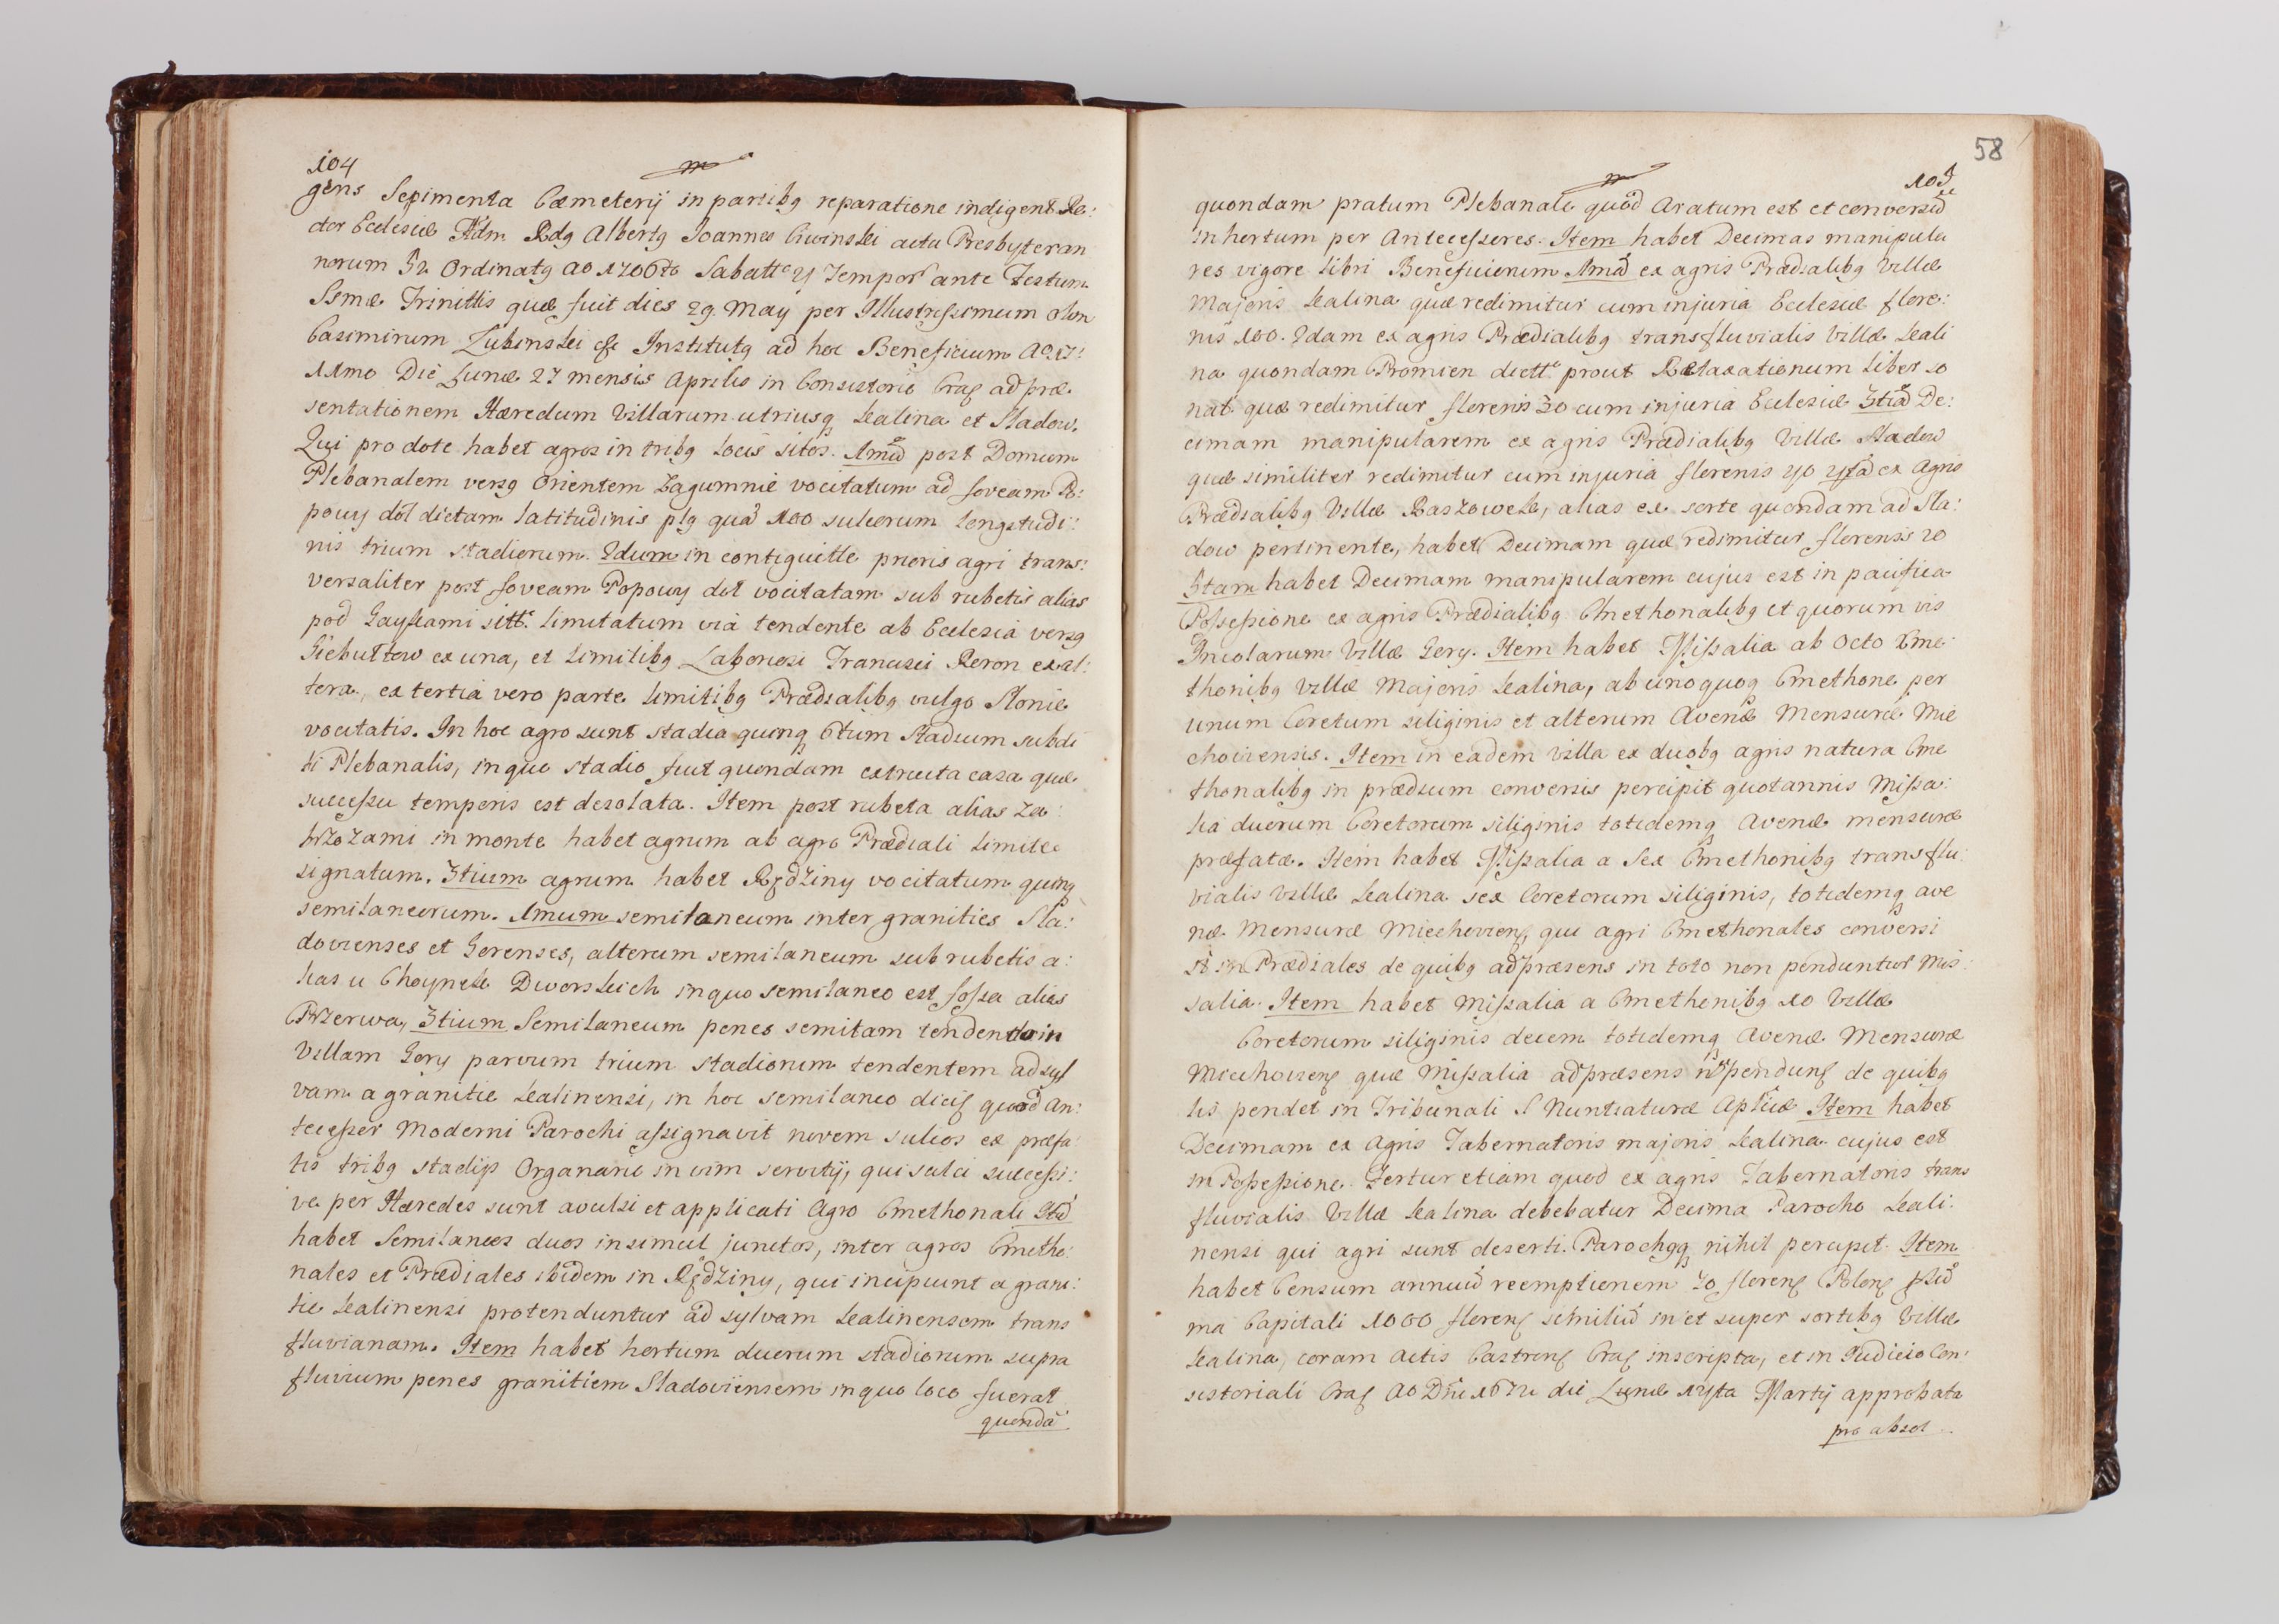 104
gens Sepimenta Cæmeterij in partibq reparatione indigent Re:
ctor Ecclesiæ Adm Rdq Albertq Joannes Ciwinski actu Presbyter an
norum 52 Ordinatq ao 1706to Sabatto 4 Tempor ante Festum
Ssmæ Trinittis quæ fuit dies 29 May per Illustrissimum olim
Casimirum Łubinski Institutq ad hoc Beneficium Ao 17:
11mo Die Lunæ 27 mensis Aprilis in Consistorio Crac ad præ
sentationem Hæredum Villarum utriusq Kalina et Sladow.
Qui pro dote habet agros in tribq locis sitos. 1mū post Domum
Plebanalem versq Orientem Zagumnie vocitatum ad foveam Po:
powy doł dictam latitudinis plq quā 100 sulcorum longitudi:
nis trium stadiorum. 2dum in contiguitte prioris agri trans:
versaliter post foveam Popowy doł vocitatam sub rubetis alias
pod Gaykami sitt. limitatum via tendente ab Ecclesia versq
Giebułtow ex una, et limitibq Laboriosi Francisci Reron ex al:
tera, ex tertia vero parte limitibq Prædialibq vulgo Słonie
vocitatis. In hoc agro sunt stadia quinq 6tum stadium subdi
ti Plebanalis, in quo stadio fuit quondam extructa casa quæ
successu temporis est desolata. Item post rubeta alias za
brzozami in monte habet agrum ab agro Prædiali limite
signatum. 3tium agrum habet Rędziny vocitatum quinq
semilaneorum. 1mum semilaneum inter granities Sla:
dovienses et Gorenses, alterum semilaneum sub rubetis a:
lias u Choynek Dworskich in quo semilaneo est fossa alias
Przerwa, 3tium Semilaneum penes semitam tendentem in
Villam Gory parvum trium stadiorum tendentem ad syl
vam a granitie Kalinensi, in hoc semilaneo dicit quod An:
tecessor Moderni Parochi assignavit novem sulcos ex præfa:
tis tribq stadijs Organario in vim servitij, qui sulci successi:
ve per Hæredes sunt avulsi et applicati Agro Cmethonali Itē
habet Semilaneos duos insimul junctos, inter agros Cmetho:
nales et Prædiales ibidem in Rędziny, qui incipiunt a grani:
tie Kalinensi protenduntur ad sylvam Kalinensem trans
fluvianam. Item habet hortum duorum stadiorum supra
fluvium penes granitiem Sladoviensem in quo loco fuerat
quondā
58
105
quondam pratum Plebanale quod aratum est et conversū
in hortum per Antecessores. Item habet Decimas manipula
res vigore libri Beneficiorum 1mā ex agris Prædialibq Villæ
Majoris Kalina quæ redimitur cum injuria Ecclesiæ flore:
nis 100. 2dam ex agris Prædialibq transfluvialis Villæ Kali
na quondam Promien dictt. prout Retaxationum Liber so
nat quæ redimitur florenis 30 cum injuria Ecclesiæ 3tiā De:
cimam manipularem ex agris Prædialibq Villæ Sladow
quæ similiter redimitur cum injuria florenis 40 4tā ex Agris
Prædialibq Villæ Raszowek, alias ex sorte quondam ad Sla:
dow pertinente, habet Decimam quæ redimitur florenis 20
5tam habet Decimam manipularem cujus est in pacifica
Possessione ex agris Prædialibq Cmethonalibq et quorum vis
Incolarum Villæ Gory. Item habet Missalia ab octo Cme:
thonibq Villæ Majoris Kalina, ab uno quoq Cmethone per
unum Coretum siliginis et alterum Avenæ Mensuræ Mie
choviensis. Item in eadem Villa ex duobq agris natura Cme
thonalibq in prædium conversis percipit quotannis Missa:
lia duorum Coretorum siliginis totidemq Avenæ mensuræ
præfatæ. Item habet Missalia a Sex Cmethonibq transflu
vialis Villæ Kalina sex Coretorum siliginis, totidemq ave
næ Mensuræ Miechovien, qui agri Cmethonales conversi
st in Prædiales de quibq ad præsens in toto non penduntur Mis:
salia. Item habet Missalia a Cmethonibq 10 Villæ
Coretorum siliginis decem totidemq Avenæ Mensuræ
Miechovien quæ Missalia ad præsens nō pendunt de quibq
lis pendet in Tribunali S Nuntiaturæ Aplicæ Item habet
Decimam ex Agris Tabernatoris majoris Kalina cujus est
in Possessione. Fertur etiam quod ex agris Tabernatoris trans
fluvialis Villæ Kalina debebatur Decima Parocho Kali:
nensi qui agri sunt deserti. Parochqq nihil percipit. Item
habet Censum annuū reemptionem 70 floren Polon
ma Capitali 1000 floren similiū in et super sortibq Villæ
Kalina, coram Actis Castren Crac inscripta, et in Judicio Con:
sistoriali Crac Ao Dni 1672 die Lunæ 14ta Martij approbata
pro absol